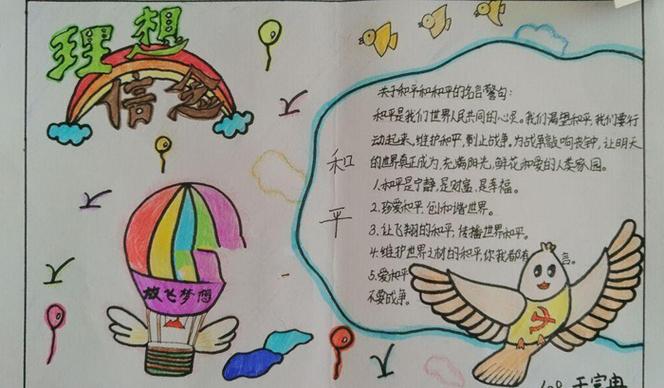 理想
信念
放飞梦想
和
平
关于和平和和平的名言警句:
和平是我们世界人民共同的心灵。我们渴望和平,我们要行
动起来,维护和平,制止战争,为战争敲响丧钟,让明天
的世界真正成为,充满阳光,鲜花和爱的人类家园。
1.和平是宁静,是财富,是幸福。
2.珍爱和平,创和谐世界。
3.让飞翔的和平,传播世界和平。
4.维护世界之材的和平,你我都有
言。
5.爱和平
不要战争。